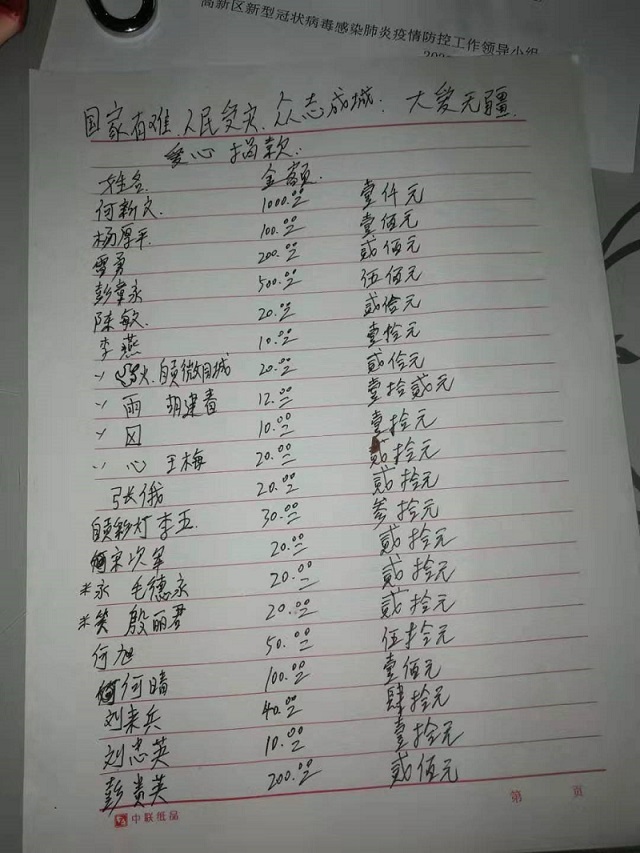 高新区新型冠状病毒感染肺炎疫情防控工作领导小组
国家有难.人民受灾.众志成城: 大爱无疆.
爱心捐款:
姓名 金额.
何新文. 1000.00 壹仟元
杨厚平. 100.00 壹佰元
雷勇 200.00 贰佰元
彭章永 500.00 伍佰元
陈敏. 20.00 贰拾元
李燕 10.00 壹拾元
火. 城 20.00 贰拾元
雨 胡建春 12.00 壹拾贰元
10.00 壹拾元
心 王梅 20.00 贰拾元
张俄 20.00 贰拾元
灯 李五. 30.00 叁拾元
20.00 贰拾元
*永 毛德永 20.00 贰拾元
*笑 殷丽君 20.00 贰拾元
何旭 50.00 伍拾元
何晴 100.00 壹佰元
刘来兵 40.00 肆拾元
刘忠英 10.00 壹拾元
彭贵英 200.00 贰佰元
中联纸品 第 页